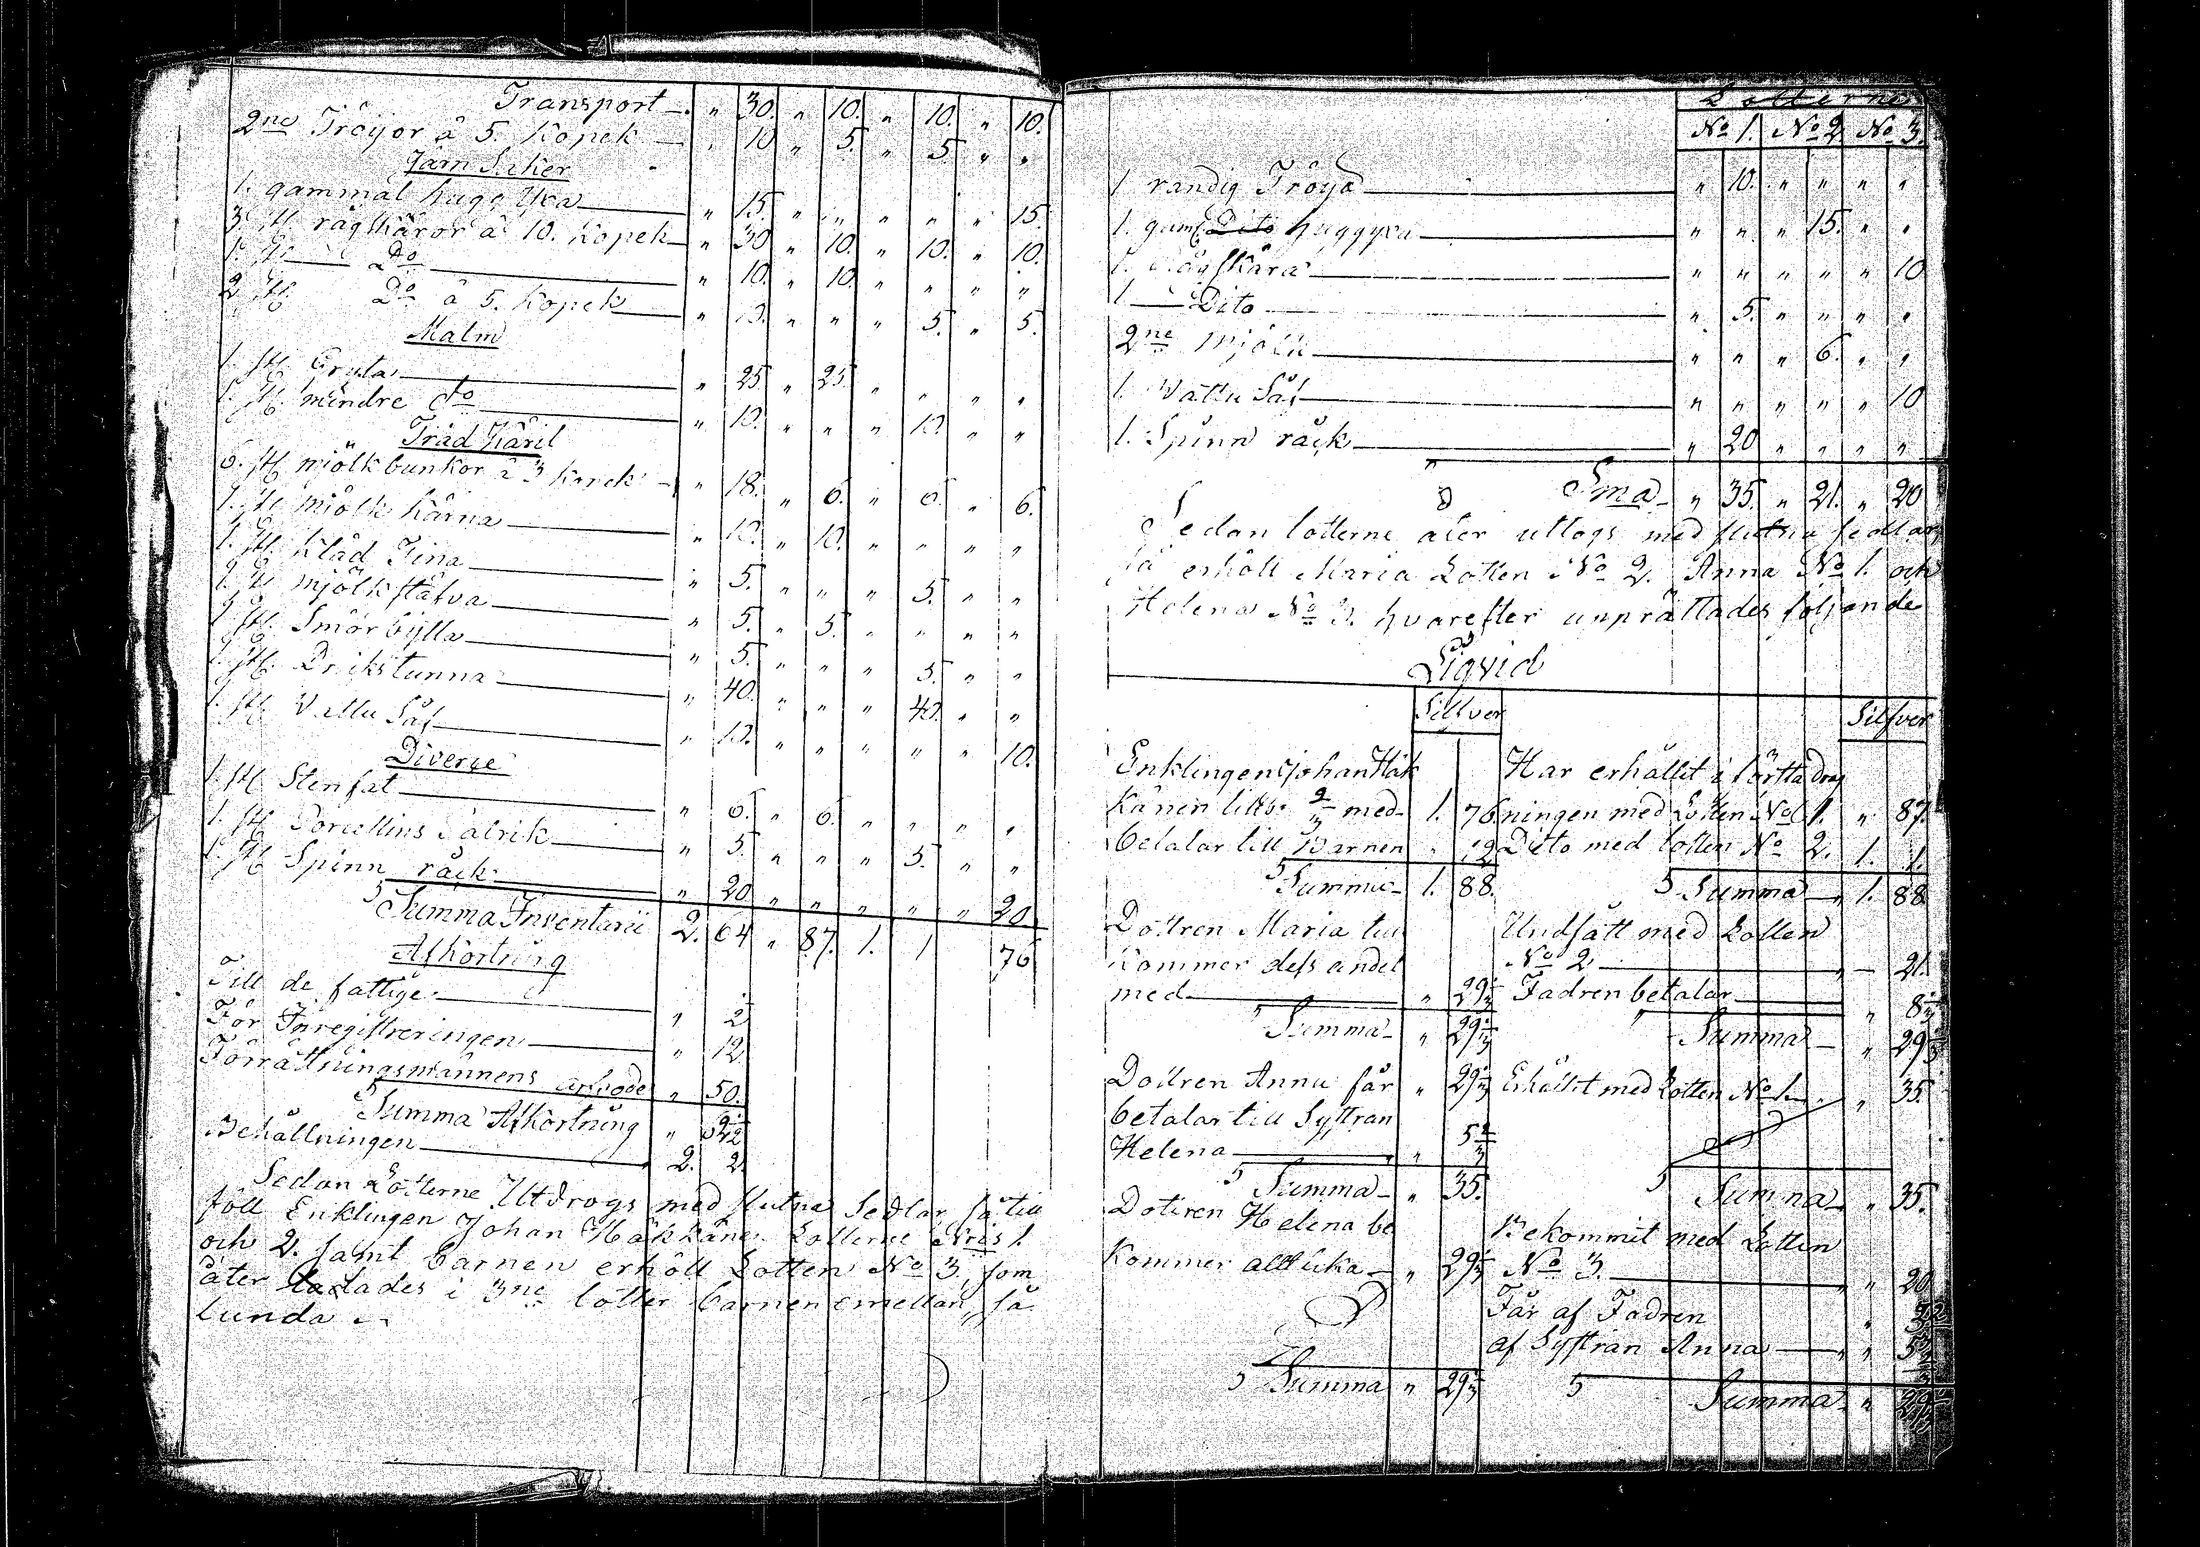 Transport " 30. " 10. " 10. " 10.
2ne Tröijor â 5. Kopek " 10 " 5. " 5. " "
Järn Saker
1. gammal hugg Yxa " 15. " " " " " 15.
3. st. rågskäror â 10. Kopek " 30 " 10. " 10. " 10.
1. st. Do " 10. " 10. " " " "
2 st. Do â 5. Kopek " 10. " " " 5. " 5.
Malm
1. st. Gryta " 25 " 25. " " " "
1. st. mindre do " 10. " " " 10. " "
Träd Käril
6. st. mjölkbunkor â 3 Kopek " 18. " 6. " 6. " 6.
1. st. mjölk kärna " 10. " 10. " " " "
1. st. Kläd Tina " 5. " " " 5. " "
1. st. mjölkstäfva " 5. " 5. " " " "
1. st. Smör bÿtta " 5. " " " 5. " "
1. st. Drikstunna " 40. " " " 40. " "
1. st. Vattu Så " 10. " " " " " 10.
Diverse
1. st. Stenfat " 6. " 6. " " " "
1. st. Porcellins Talrik " 5. " " " 5. " "
1. st. Spinn råck " 20 " " " " " 20.
Summa Inventarii 2. 64 " 87. 1. 1 76
Afkortning
Till de fattige " 2
För Inregistreringen " 12
Förrättningsmannens arfvode " 50.
Summa Afkortning "
Behållningen 2. 2.
Sedan Lotterne Utdrogs med slutna Sedlar, så till
föll Enklingen Johan Häkkänen Lotterne Nris 1.
och 2. samt barnen erhöll Lotten No 3, som
åter lades i 3ne lotter barnen emellan, så
lunda
Lotterne
No 1. No 2 No 3.
1. randig Tröja " 10. " " " "
1. gaml. Dito huggyxa " " " 15. " "
1. rågskära " " " " " 10
1. Dito " 5. " " " "
2ne mjölk " " " 6. " "
1. Vattu Så " " " " " 10
1. Spinn råck " 20 " " " "
Sma " 35. " 21. " 20
Sedan lotterne åter uttogs med slutna sedlar,
så erhöll Maria Lotten No 2. Anna No 1. och
Helena No 3. hvarefter upprättades följande
Liqvid
Silfver Silfver
Enklingen Johan Häk Har erhållit i första drag
känen tillk. 2/3 med 1. 76 ningen med Lotten No 1. " 87.
betalar till Barnen " 12 Dito med lotten No 2. 1. 1.
Summa 1. 88. Summa 1. 88
Dottren Maria till Undfått med Lotten
kommer dess andel No 2 21.
med " 29 1/3 Fadren betalar " 8 1/3
Summa " 29 1/3 Summa " 29 1/3
Dottren Anna får " 29 1/3 Erhållit med Lotten No 1. " 35.
betalar till Systran
Helena " 5 2/3
Summa " 35. Summa " 35.
Dottren Helena be Bekommit med Lotten
kommer allt lika " 29 1/3 No 3. " 20
Får af Fadren " 3 2/3
af Systran Anna " 5 2/3
Summa " 29 1/3 Summa " 29 1/3